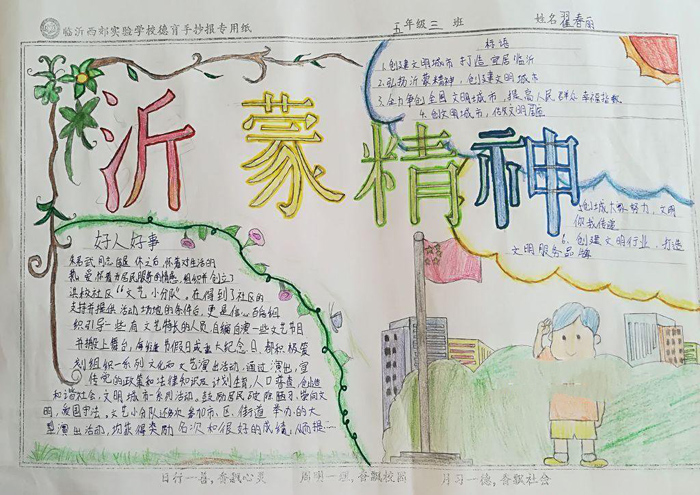 临沂西郊实验学校德育手抄报专用纸 五年级三 班 姓名翟春丽
沂蒙精神
标语
1.创建文明城市 打造宜居临沂
2.弘扬沂蒙精神,创建文明城市
3.全力争创全国文明城市,提高人民群众幸福指数
4.创文明城市,传文明
5.创城大家努力,文明
你我传递
6.创建文明行业,打造
文明服务品牌
好人好事
同志退休之后,怀着对生活的
热爱,怀着为居民服务的情感,组织并创立了
滨校社区"文艺小分队"。在得到了社区的
支持并提供活动场地的条件后,更是信心百倍组
织引导一些有文艺特长的人员,自编自演一些文艺节目
并搬上舞台,每逢节假日或重大纪念日,都积极策
划组织一系列文化和文艺演出活动,通过演出,宣
传党的政策和法律知识及计划生育,人口普查,创造
和谐社会,文明城市系列活动。鼓励居民破除陋习,崇尚文
明,爱国守法。文艺小分队还多次参加市、区、街道举办的大
型演出活动,均获得奖励名次和很好的成绩,
日行一善,香飘心灵 周明一理,香飘校园 月习一德,香飘社会